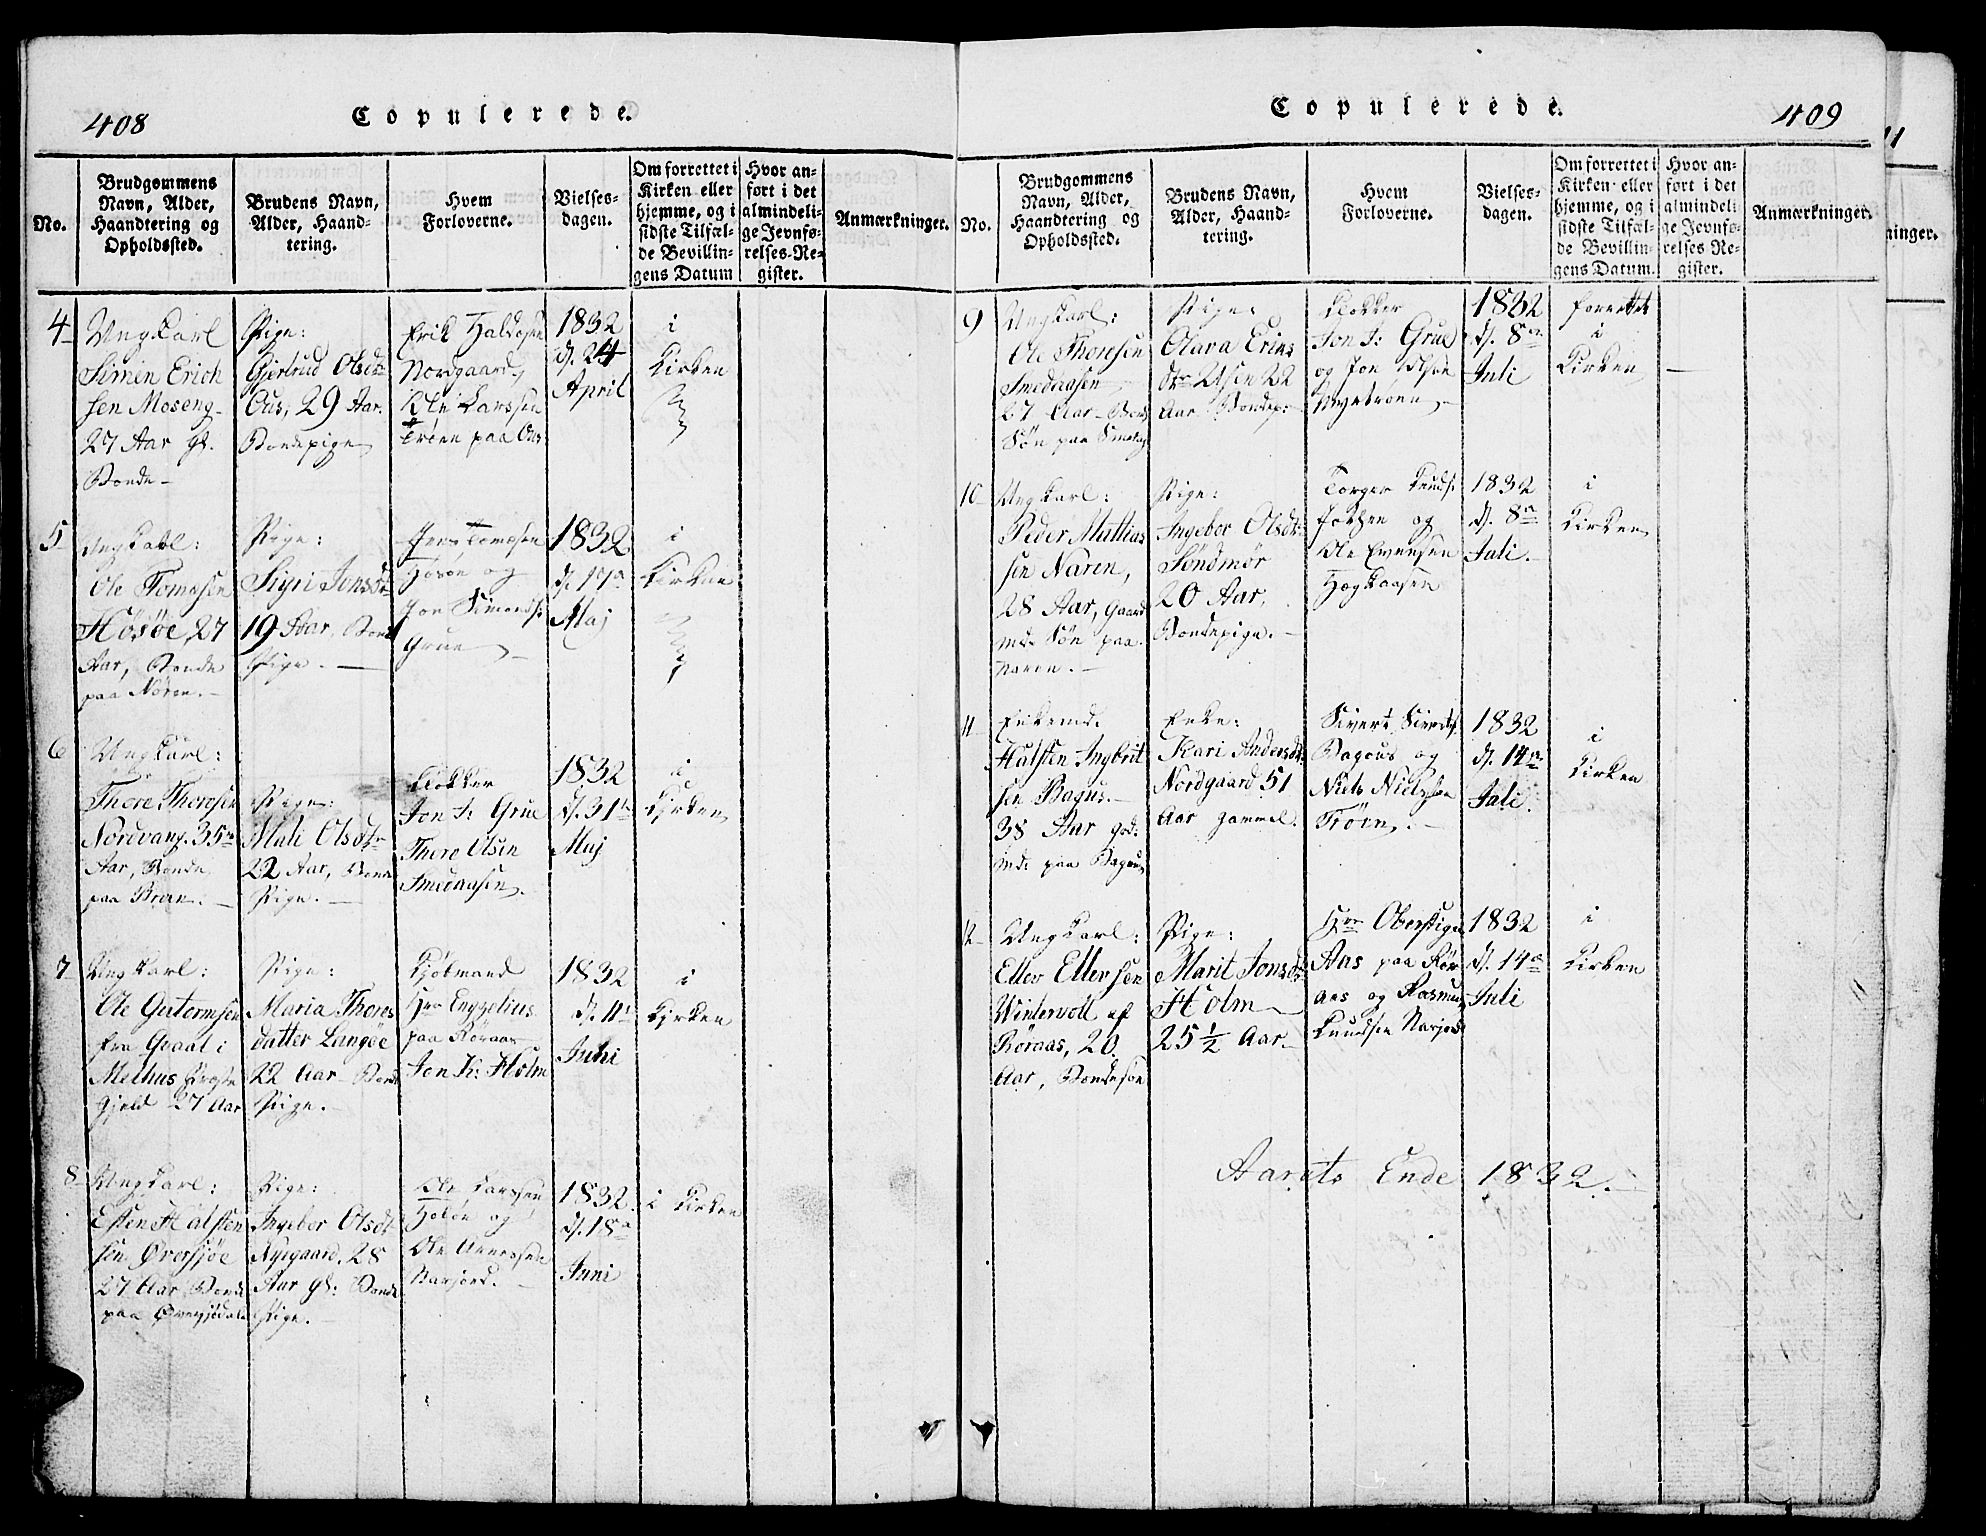 408
Copulerede.
No.
Brudgommens
Navn, Alder,
Haandtering og
Opholdssted.
Brudens Navn,
Alder, Haand-
tering.
Hvem
Forloverne.
Vielses-
dagen.
Om forrettet i
Kirken eller
hjemme, og i
sidste Tilfæl-
de Bevillin-
gens Datum
Hvor an-
ført i det
almindeli-
ge Jevnfø-
relses-Re-
gister.
Anmærkninger.
4
Ungkarl
Simen Erich
sen Moseng
27 Aar gl.
Bonde
Pige:
Gjertrud Olsdtr
Ous, 29 Aar.
Bondepige
Erik Haldosen
Nordgaard
Ole Larssen
Trøen paa Ous
1832
d. 24
April
i
Kirken
5
Ungkarl:
Ole Tomesen
Hösöe, 27
Aar, Bonde
paa Nören.
Pige:
Sigri Jonsdtr
19 Aar, Bonde
Pige.
Jens Tomesen
og
Jon Simonds:
Grue
1832
d. 17a
Maj
i
Kirken
6
Ungkarl:
Thore Thoresen
Nordvang. 35
Aar, Bonde
paa
Pige:
Mali Olsdtr
22 Aar, Bonde
Pige.
Klokker
Jon J: Grue
Thore Olsen
Smedaasen.
1832
d. 31
Maj
i
Kirken
7
Ungkarl:
Ole Gutormsen
fra Graal i
Melhus Præste
Gjeld 27 Aar
Pige:
Maria Thores
datter Langøe
22 Aar Bonde
Pige.
Kjøbmand
Hr Engzelius
paa Røraas
Jon K: Holm
1832
d. 11
Juni
i
Kirken
8
Ungkarl:
Esten Halsten
sen Øversjøe
27 Aar Bonde
paa Øversjødalen
Pige:
Ingebor Olsdtr
Nysgaard. 28
Aar gl: Bonde
Pige.
Ole Larssen
Holøn og
Ole
Narjord.
1832
d. 18a
Juni
i Kirken
Copulerede.
409
No.
Brudgommens
Navn, Alder,
Haandtering og
Opholdssted.
Brudens Navn,
Alder, Haand-
tering.
Hvem
Forloverne.
Vielses-
dagen.
Om forrettet i
Kirken eller
hjemme, og i
sidste Tilfæl-
de Bevillin-
gens Datum.
Hvor an-
ført i det
almindeli
ge Jevnfø-
relses Re-
gister.
Anmærkninger.
9
Ungkarl:
Ole Thoresen
Smedaasen
27 Aar Bonde
Søn paa
Pige:
Olava Eriks
Dtr Utsen 22
Aar Bondep:
Klokker
Jon J: Grue
og Jon Olsen
Nyetrøen
1832
d. 8
Juli
forrettet
i
Kirken
10
Ungkarl:
Peder Mathias
sen Naren,
28 Aar, Gaard
md. Søn paa
Naren.
Pige:
Ingebor Olsdt:
Söndmör
20 Aar.
Bondepige.
Torger Knuds:
og
Ole Evensen
1832
d. 8
Juli.
i
Kirken
11
Enkemd.
Halsten Ingbrit
sen Bagus.
38 Aar
md. paa Bagus
Enke:
Kari Andersdt:
Nordgaard 51
Aar gammel.
Sivert
Bagous og
Niels Nielssen
Trøen.
1832
d. 14
Juli.
i
Kirken
12
Ungkarl:
Ellev Ellevsen
Wintervoll af
Røraas, 20.
Aar, Bondesøn
Pige:
Marit Jonsdt:
Holm
25 1/2 Aar.
Hr Oberstiger
Aas paa Rør
aas og Rasmus
Knudsen Narjord
1832
d. 14
Juli
i
Kirken
Aarets Ende 1832.
11
ninger.